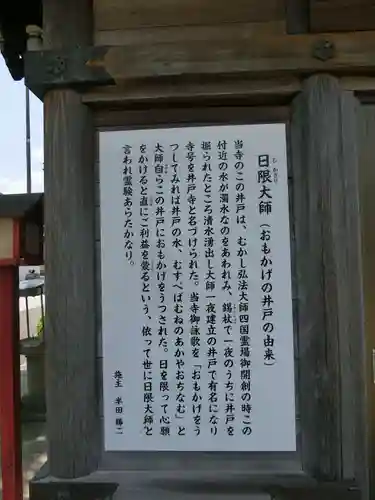 日限大師（おもかげの井戸の由来）
ひ かぎり
当寺のこの井戸は、むかし弘法大師四国霊場御開創の時この
付近の水が濁水なのをあわれみ、錫杖で一夜のうちに井戸を
掘られたところ清水湧出し大師一夜建立の井戸で有名になり
寺号を井戸寺と名づけられた。当寺御詠歌を「おもかげをう
つしてみれば井戸の水、むすべばむねのあかやおちなむ」と
大師自らこの井戸におもかげをうつされた。日を限って心願
をかけると直にご利益を蒙るという、依って世に日限大師と
言われ霊験あらたかなり。
施主 米田 勝二